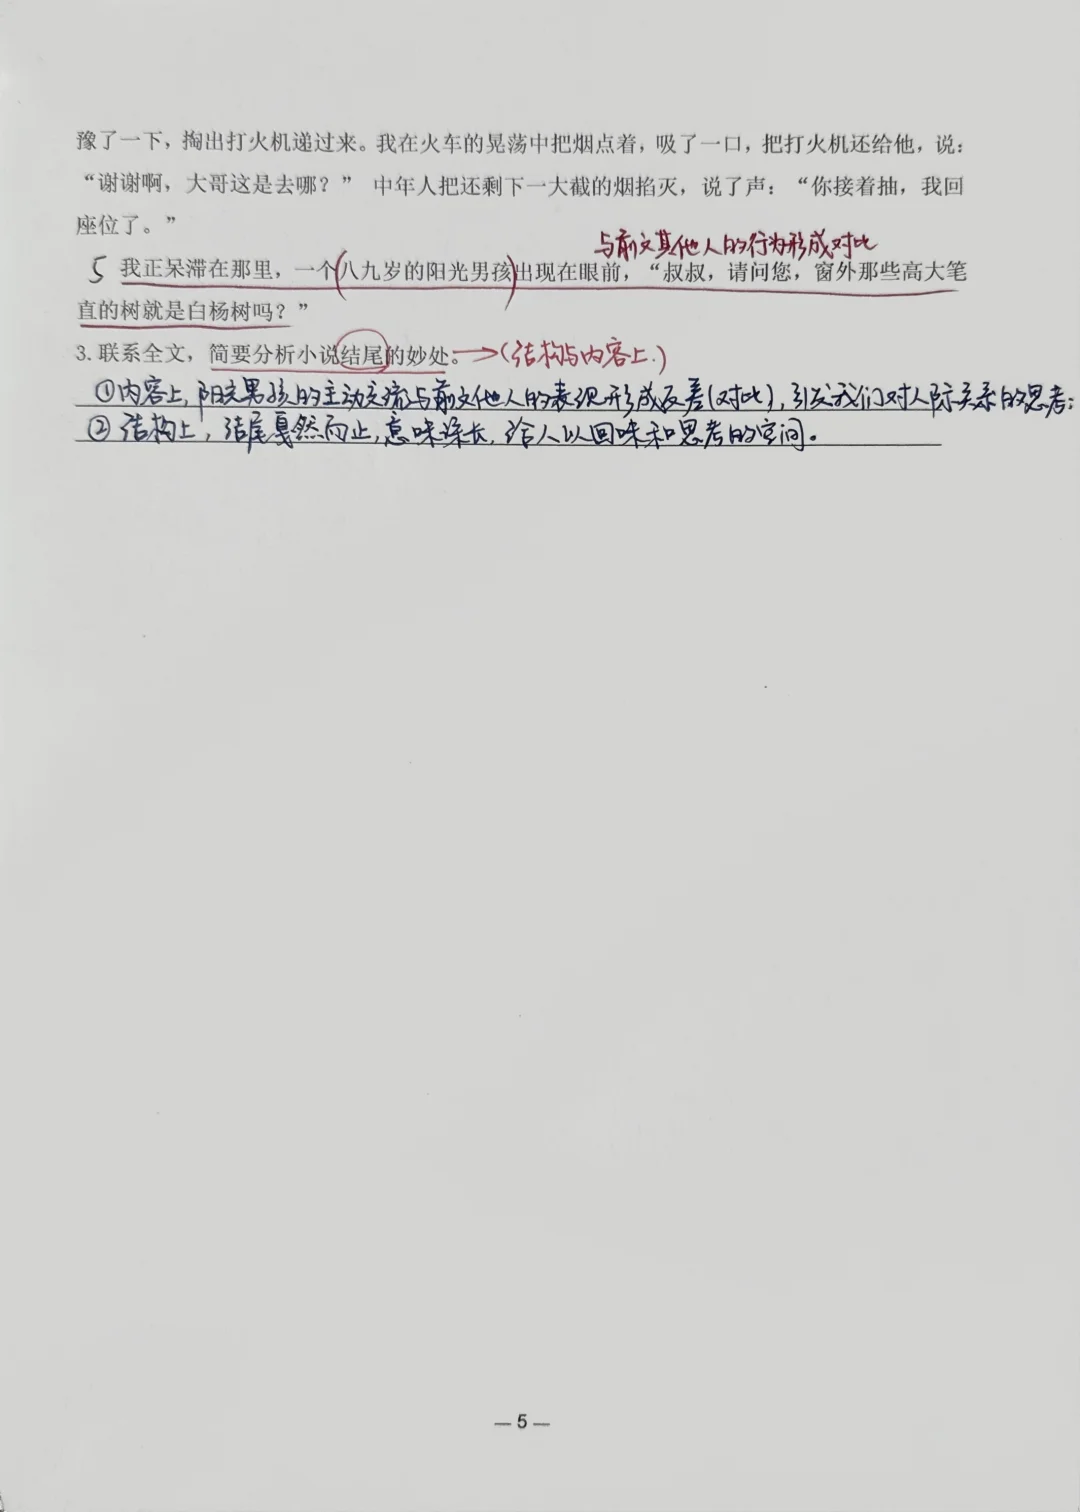 豫了一下，掏出打火机递过来。我在火车的晃荡中把烟点着，吸了一口，把打火机还给他，说：
“谢谢啊，大哥这是去哪？” 中年人把还剩下一大截的烟掐灭，说了声：“你接着抽，我回
座位了。”
与前文其他人的行为形成对比
5 我正呆滞在那里，一个(八九岁的阳光男孩)出现在眼前，“叔叔，请问您，窗外那些高大笔
直的树就是白杨树吗？”
3. 联系全文，简要分析小说结尾的妙处。→(结构与内容上.)
①内容上,阳光男孩的主动交流与前文他人的表现形成反差(对比),引发我们对人际关系的思考;
②结构上,结尾戛然而止,意味深长,给人以回味和思考的空间。
— 5 —